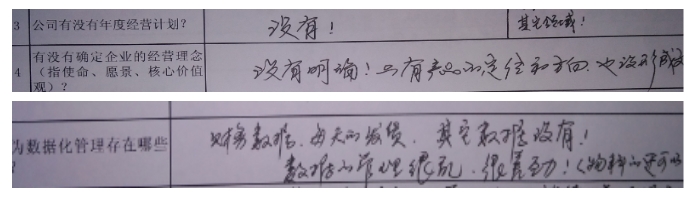 3 公司有没有年度经营计划? 没有!
4 有没有确定企业的经营理念
(指使命、愿景、核心价值
观)? 没有明确!只有产品的定位和方向,也没形成
为数据化管理存在哪些
财务数据,每天的发货,其它数据没有!
数据的管理很乱,很差劲!(物料的还可以